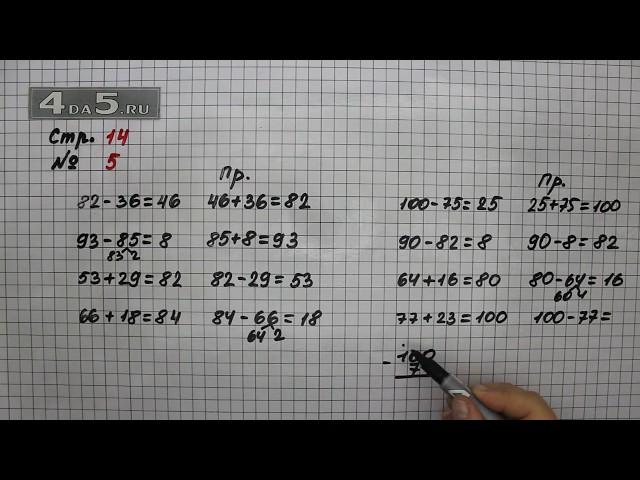 4DA5.RU
Стр. 14
№ 5
Пр.
82-36=46 46+36=82
93-85=8 85+8=93
83 2
53+29=82 82-29=53
66+18=84 84-66=18
64 2
Пр.
100-75=25 25+75=100
90-82=8 90-8=82
64+16=80 80-64=16
60 4
77+23=100 100-77=
- 100
7